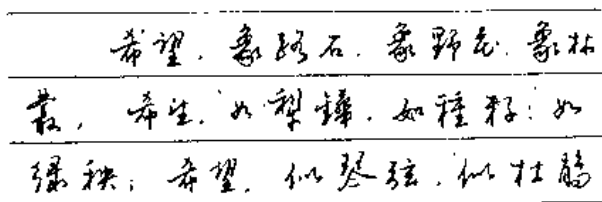 希望，象路石，象野花，象林
丛，希望，如犁铧，如種籽；如
绿秧；希望，似琴弦，似杜鹃